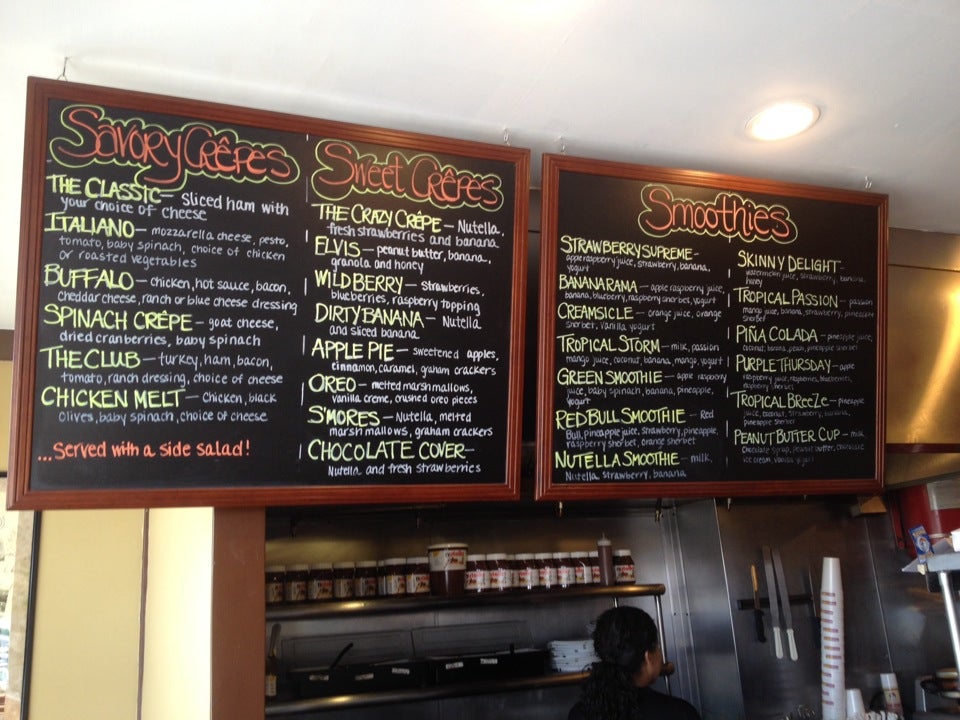 Savory Crêpes
The Classic— sliced ham with
your choice of cheese
Italiano— mozzarella cheese, pesto,
tomato, baby spinach, choice of chicken
or roasted vegetables
Buffalo— chicken, hot sauce, bacon,
cheddar cheese, ranch or blue cheese dressing
Spinach Crêpe— goat cheese,
dried cranberries, baby spinach
The Club— turkey, ham, bacon,
tomato, ranch dressing, choice of cheese
Chicken Melt— chicken, black
olives, baby spinach, choice of cheese
...Served with a side salad!
Sweet Crêpes
The Crazy Crêpe— Nutella,
fresh strawberries and banana
Elvis— peanut butter, banana,
granola and honey
Wildberry— strawberries,
blueberries, raspberry topping
Dirty Banana— Nutella
and sliced banana
Apple Pie— sweetened apples,
cinnamon, caramel, graham crackers
Oreo— melted marshmallows,
vanilla creme, crushed oreo pieces
S'mores— Nutella, melted
marshmallows, graham crackers
Chocolate Cover—
Nutella and fresh strawberries
Smoothies
Strawberry Supreme—
apple raspberry juice, strawberry, banana,
yogurt
Bananarama— apple raspberry juice,
banana, blueberry, raspberry sherbet, yogurt
Creamsicle— orange juice, orange
sherbet, vanilla yogurt
Tropical Storm— milk, passion
mango juice, coconut, banana, mango, yogurt
Green Smoothie— apple raspberry
juice, baby spinach, banana, pineapple,
yogurt
Red Bull Smoothie— Red
Bull, pineapple juice, strawberry, pineapple,
raspberry sherbet, orange sherbet
Nutella Smoothie— milk,
Nutella, strawberry, banana
Skinny Delight—
watermelon juice, strawberry, banana,
honey
Tropical Passion— passion
mango juice, banana, strawberry, pineapple
sherbet
Piña Colada— pineapple juice,
coconut, banana, peach, pineapple sherbet
Purple Thursday— apple
raspberry juice, raspberries, blueberries,
raspberry sherbet
Tropical Breeze— pineapple
juice, coconut, strawberry, banana,
pineapple sherbet
Peanut Butter Cup— milk,
chocolate syrup, peanut butter, chocolate
ice cream, vanilla yogurt
nutella